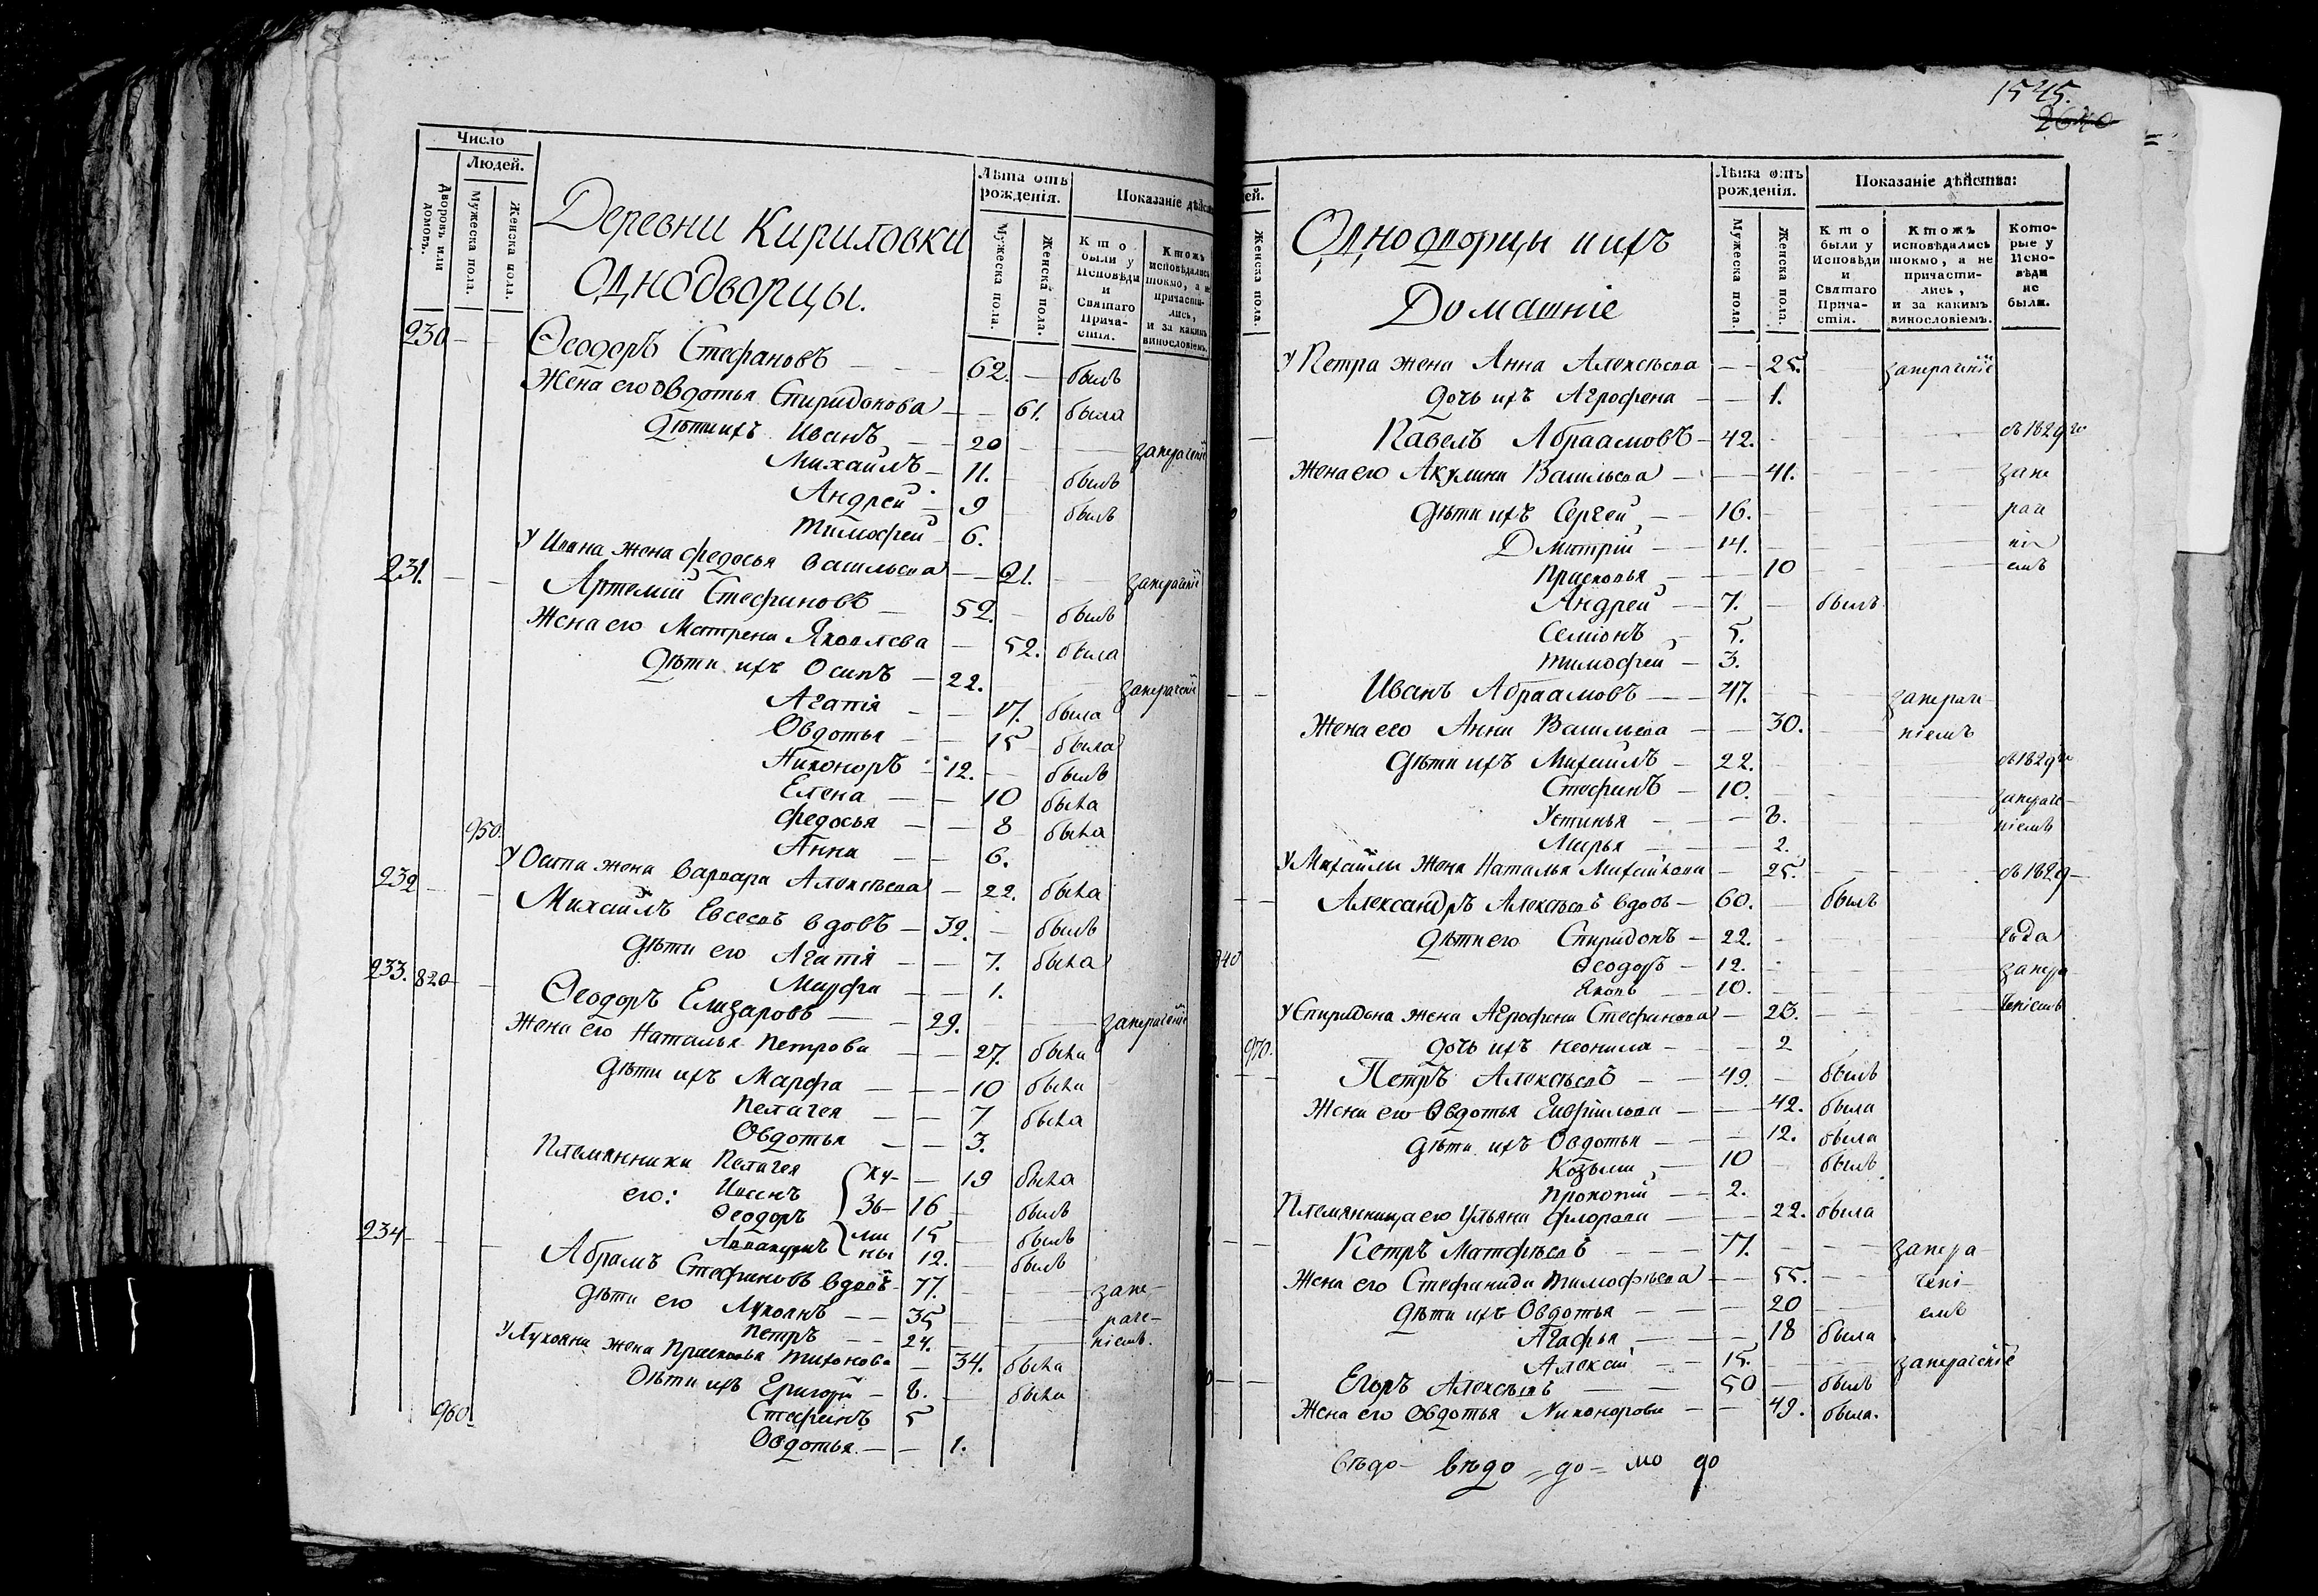 Число
Людей.
Дворовъ или домовъ.
Мужеска пола.
Женска пола.
Деревни Кириловки
Однодворцы.
Лѣта отъ рожденія.
Мужеска пола.
Женска пола.
Показаніе
Кто были у Исповѣди и Святаго Прича-стія.
Ктожъ исповѣдались токмо, а не причасти-лись, и за какимъ винословіемъ.
230 — — Ѳеодоръ Стефановъ — 62. — былъ
Жена его Овдотья Спиридонова — — 61. была
Дѣти ихъ Иванъ — 20 — — запираніе
Михаилъ — 11. былъ
Андрей — 9 былъ
Тимофей 6.
У Ивана жена Федосья Васильева — 21. запираніе
231. — — Артемій Стефановъ — 52. — былъ
Жена его Матрена Яковлева — 52. была
Дѣти ихъ Осипъ — 22. запираніе
Агапія — — 17. была
Овдотья — — 15 — была
Никоноръ — 12. — былъ
Елена — — 10 была
Федосья — — 8 была
950. Анна — — 6.
У Осипа жена Варвара Алексѣева — 22. была
232 — — Михаилъ Евсеевъ вдовъ — 32. — былъ
Дѣти его Агапія — — 7. была
Марфа — — 1.
233. 820 — Ѳеодоръ Елизаровъ — — 29.
Жена его Наталья Петрова — — 27. была
Дѣти ихъ Марфа — — 10 была
Пелагея — — 7 была
Овдотья — — 3.
Племянники Пелагея ку- — 19 была
его: Иванъ зь- 16 — былъ
Ѳеодоръ ми 15 — былъ
ны 12. — былъ
234 — — Абрамъ Стефановъ вдовъ 77. — запе-
Дѣти его Лукоянъ — — 35 — раче-
Петръ — — 24. — ніемъ.
У Лукояна жена Прасковья Тихонова — 34. была
Дѣти ихъ Григорій — 8. — была
960. Стефанъ 5
Овдотья — — 1.
1545.
2640
Женска пола.
Однодворцы и ихъ
Домашніе
Лѣта отъ рожденія.
Мужеска пола.
Женска пола.
Показаніе дѣйства:
Кто были у Исповѣди и Святаго Прича-стія.
Ктожъ исповѣдались токмо, а не причасти-лись, и за какимъ винословіемъ.
Кото-рые у Испо-вѣди не были.
У Петра жена Анна Алексѣева — — 25.
Дочь ихъ Агрофена — — 1.
Павелъ Абраамовъ — 42. съ 1829 го
Жена его Акулина Васильева — — 41. запе
Дѣти ихъ Сергей — — 16. рач
Дмитрій — — 14.
Прасковья — — 10 емъ
Андрей — 7. — былъ
Семіонъ — 5.
Тимофей — 3.
Иванъ Абраамовъ — — 47. запераче
Жена его Анна Васильева — — 30. ніемъ
Дѣти ихъ Михаилъ — 22. съ 1829 го
Стефанъ — 10. запераче-
Устинья — — 8. ніемъ
Марья — — 2.
У Михайлы жена Наталья Михайлова — 25. съ 1829 —
Александръ Алексѣевъ вдовъ — 60. — былъ
Дѣти его Спиридонъ — 22. года
Ѳеодоръ — 12. запера
Яковъ — 10. ченіемъ
У Спиридона жена Агрофена Стефанова — 23.
970. Дочь ихъ Неонила — — 2
Петръ Алексѣевъ — — 49. — былъ
Жена его Овдотья — — 42. была
Дѣти ихъ Овдотья — — 12. была
Козьма — 10 — былъ
Прокопій — — 2.
Племянница его Ульяна Флорова — — 22. была
Петръ Матфѣевъ — — запера-
Жена его Стефанида Тимофѣева — — 55. чені-
Дѣти ихъ Овдотья — — 20 емъ
Агафья — — 18 была
Алексѣй — — 15.
Егоръ Алексѣевъ — — 50 — былъ
Жена его Овдотья Никонорова — — 49. была.
вѣдо — вѣдо = до = мо до